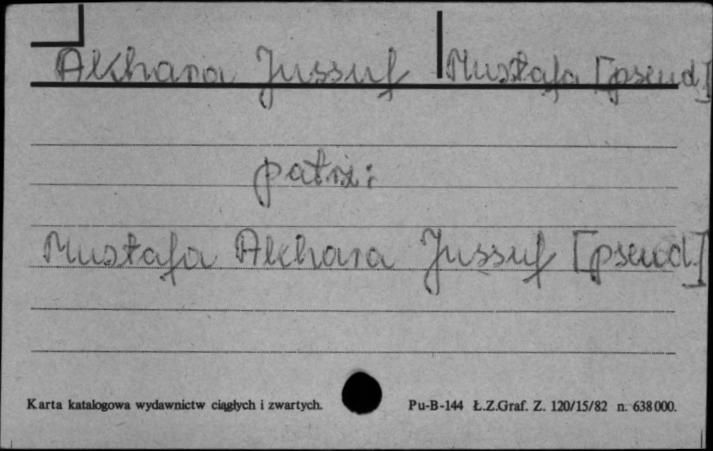 Akhara Jussuf Mustafa [pseud]
patrz:
Mustafa Akhara Jussuf [pseud.]
Karta katalogowa wydawnictw ciągłych i zwartych. Pu-B-144 Ł.Z.Graf. Z. 120/15/82 n. 638000.